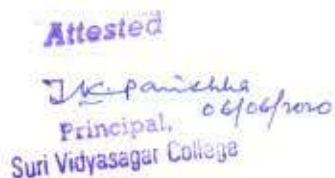 Attested
06/06/2020
Principal,
Suri Vidyasagar College